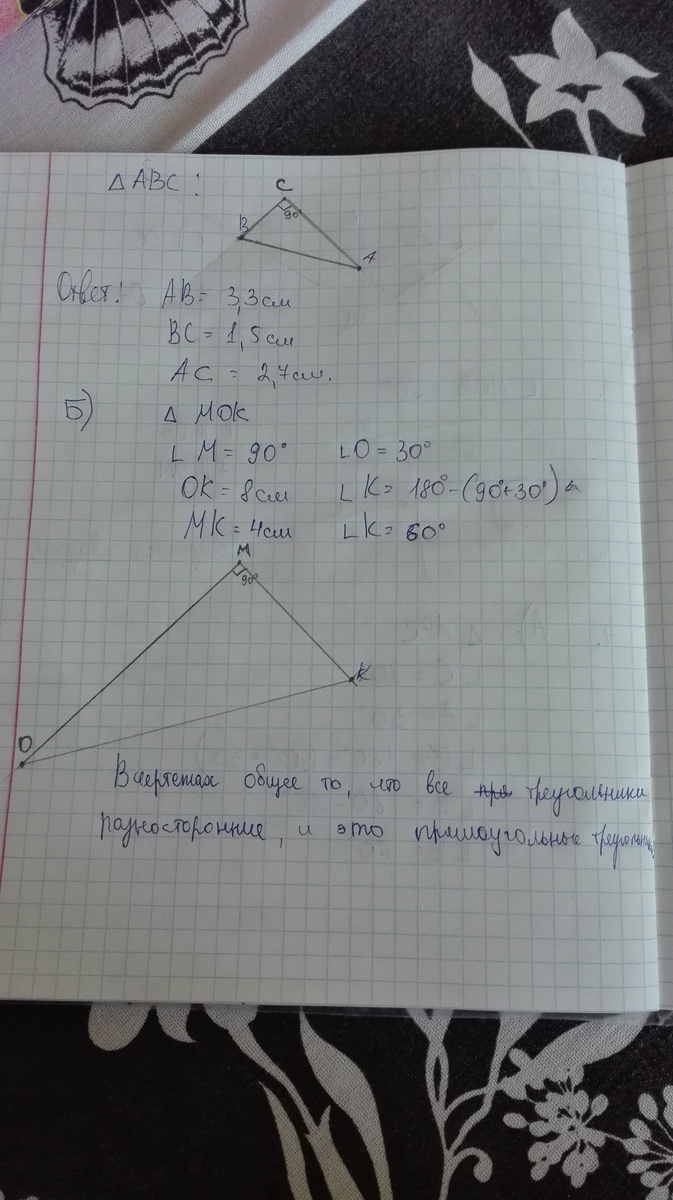 Δ ABC :
C
90°
B
A
Ответ: AB = 3,3 см
BC = 1,5 см
AC = 2,7 см.
Б) Δ МОК
∟ M = 90° ∟O = 30°
OK = 8 см ∟ K = 180° - (90°+30°)
MK = 4 см ∟K = 60°
M
90°
K
O
В чертежах общее то, что все треугольники
разносторонние, и это прямоугольные треугольники